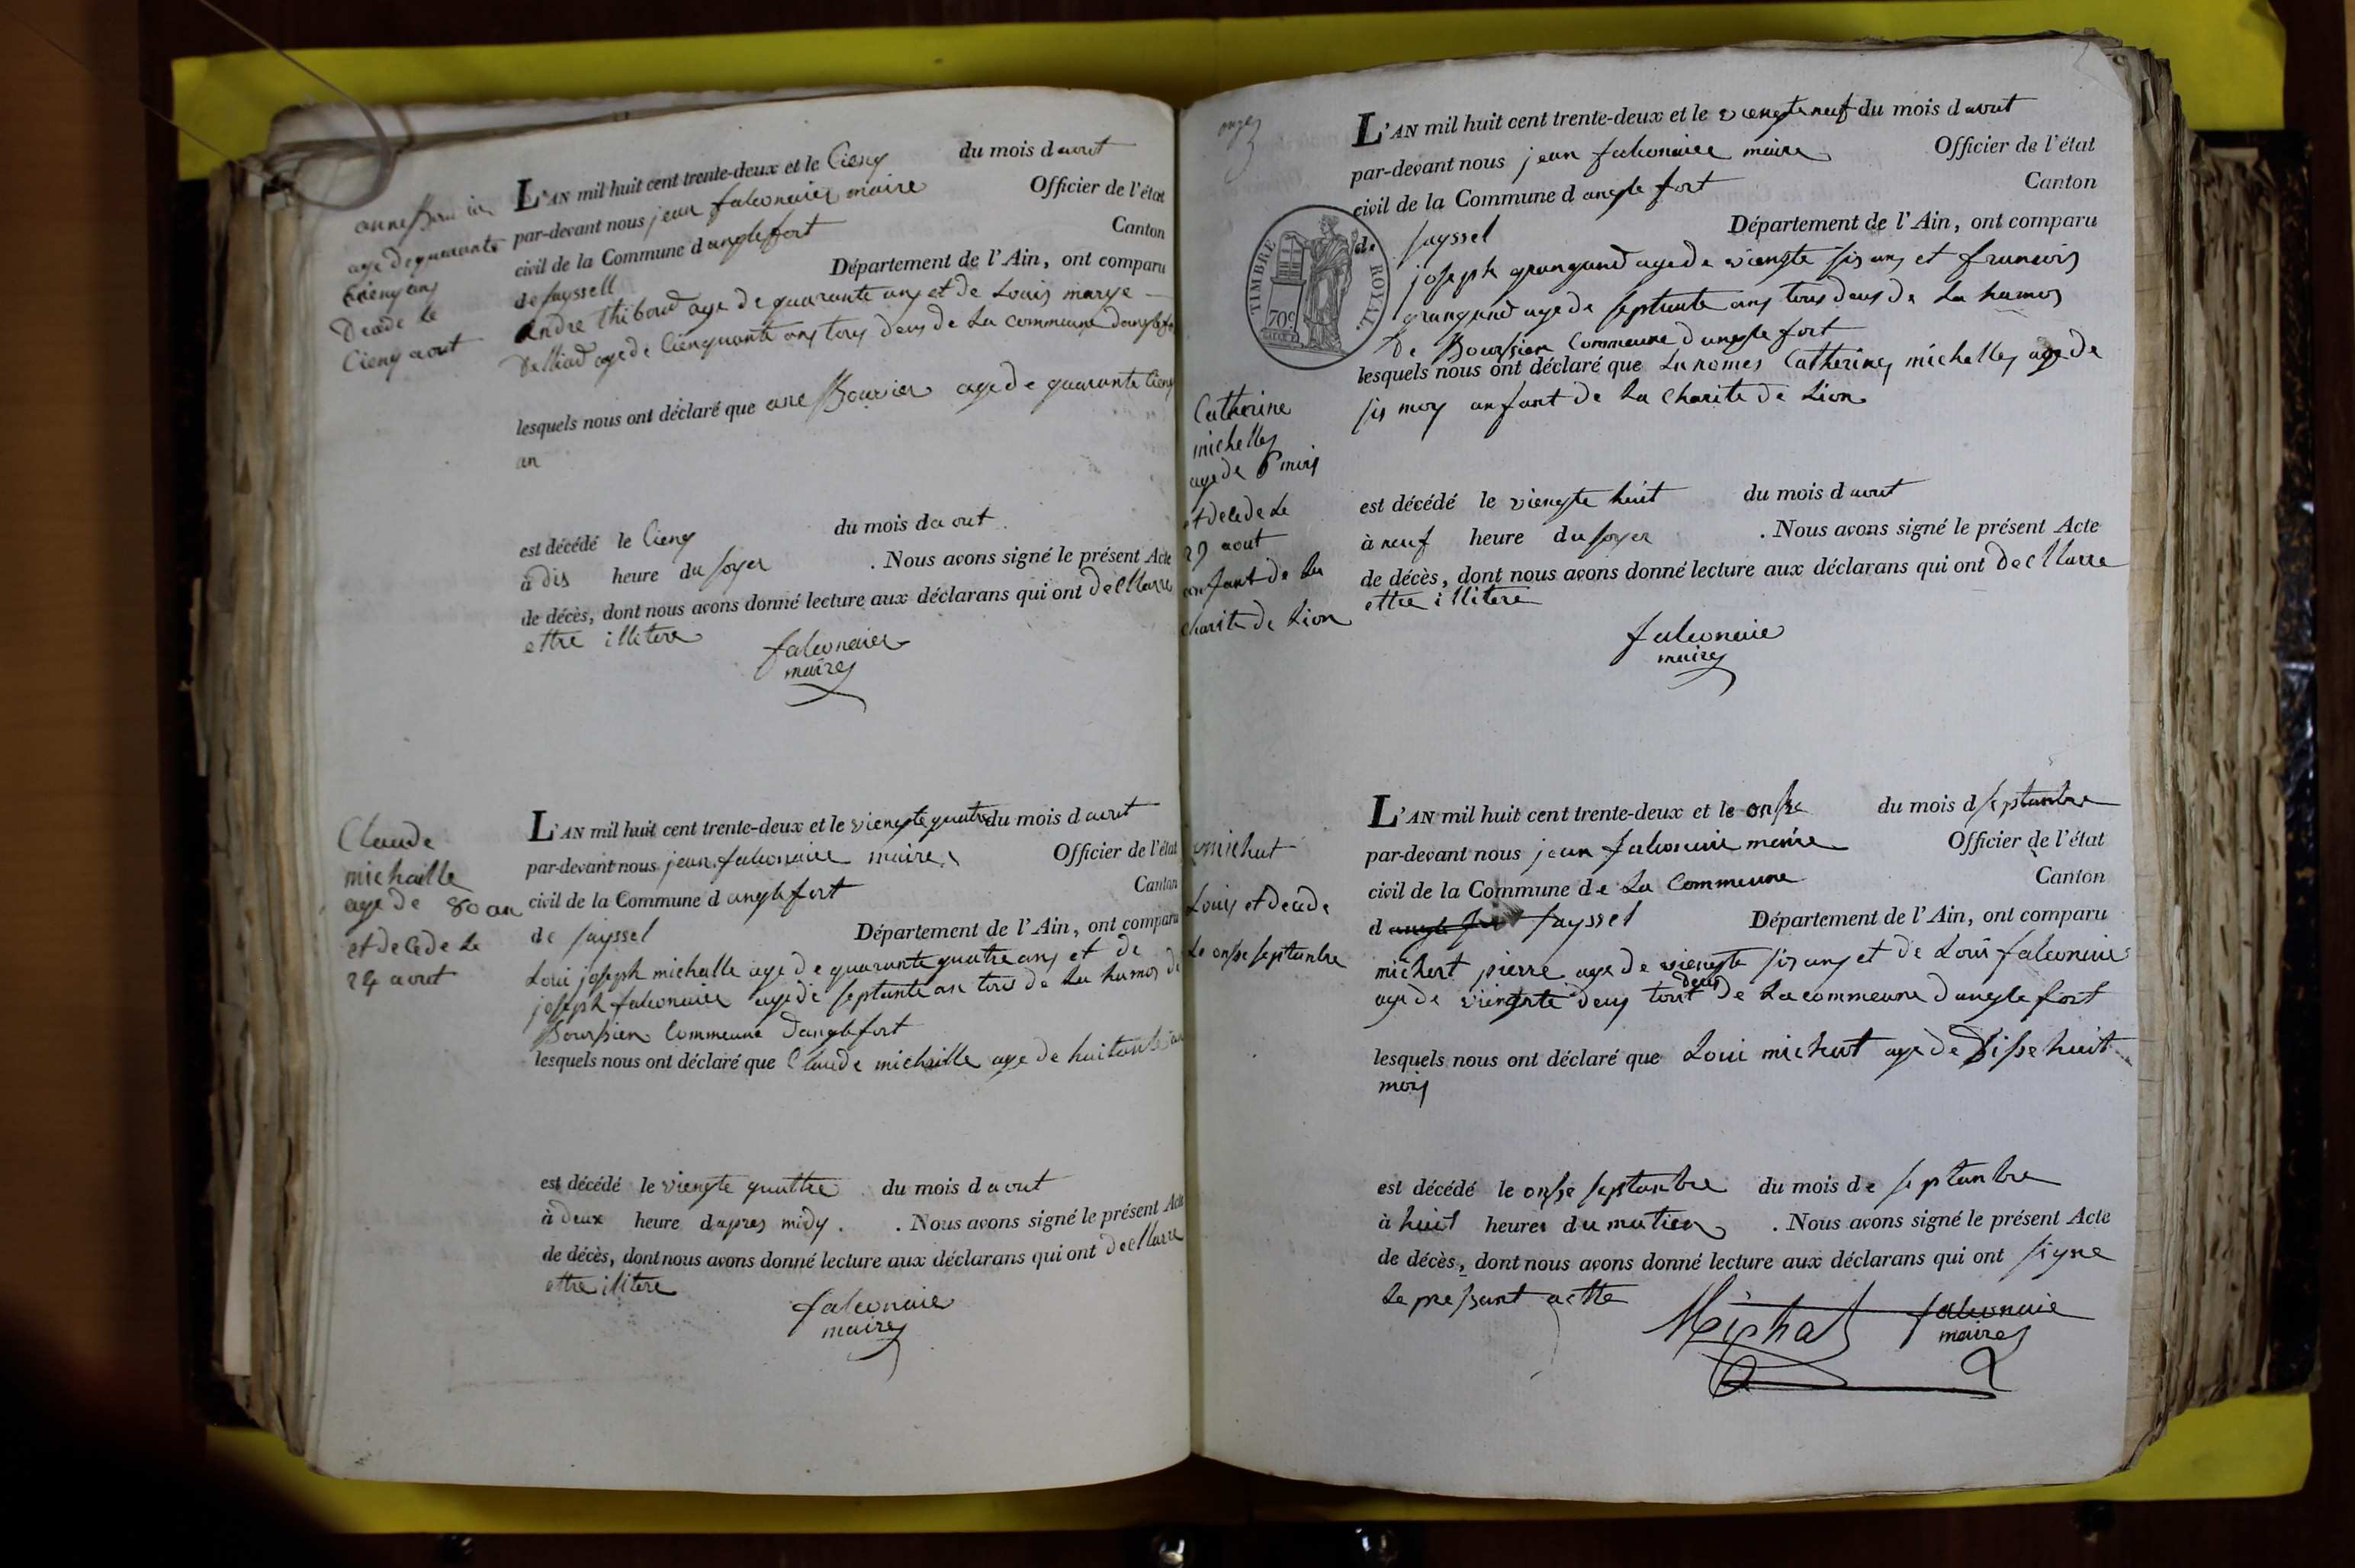 anne Bouvier
age de quarante
Cienq ans
Décde le
Cienq aout
L'AN mil huit cent trente-deux et le Cienq du mois d aout
par-devant nous jean falconnier maire Officier de l'état
civil de la Commune d anglefort Canton
de Sayssell Département de l'Ain, ont comparu
andre Thiboud age de quarante ans et de Louis marye
age de Cienquante ans tous deus de La commeune danglefo
lesquels nous ont déclaré que ane Bouvier age de quarante Cienq
an
est décédé le Cienq du mois da out
à dis heure du soyer . Nous avons signé le présent Acte
de décès, dont nous avons donné lecture aux déclarans qui ont decllarre
ettre illitere
falconnier
maire
Claude
michaille
age de 80 an
et decede Le
24 aout
L'AN mil huit cent trente-deux et le viengte quatre du mois d aout
par-devant nous jean falconnier maire Officier de l'état
civil de la Commune d anglefort Canton
de Sayssel Département de l'Ain, ont comparu
Loui joseph michalle age de quarante quatre ans et de
joseph falconnier age de septante an tous de La humos de
Boursien Commeune Danglefort
lesquels nous ont déclaré que Claude michaille age de huitante an
est décédé le viengte quattre du mois d aout
à deux heure dapres midy . . Nous avons signé le présent Acte
de décès, dont nous avons donné lecture aux déclarans qui ont decllarre
ettre illitere
falconaie
maire
onze
L'AN mil huit cent trente-deux et le viengte neuf du mois d aout
par-devant nous jean falconaier maire Officier de l'état
civil de la Commune d angle fort Canton
de Sayssel Département de l'Ain, ont comparu
TIMBRE ROYAL.
70c
joseph grangand age de viengte sis ans et francois
grangand age de septante ans tous deus de La humos
De Boursien Commeune d angle fort
lesquels nous ont déclaré que La nomes Catherine michelles age de
sis moy anfant de La Charite de Lion
Catherine
michelles
age de 6 mois
et decede Le
29 aout
enfant de La
charite de Lion
est décédé le viengte huit du mois d aout
à neuf heure du soyer . Nous avons signé le présent Acte
de décès, dont nous avons donné lecture aux déclarans qui ont decllarre
ettre illitere
falconaie
maire
michut
Louis et decede
Le onse septanbre
L'AN mil huit cent trente-deux et le onse du mois d septanbre
par-devant nous jean falconaie maire Officier de l'état
civil de la Commune de La Commeune Canton
d angle fort Sayssel Département de l'Ain, ont comparu
michut pierre age de viengte sis ans et de Loui falconaie
age de viengte deus tout deus de La commeune d angle fort
lesquels nous ont déclaré que Loui michut age de Disse huit
mois
est décédé le onse septanbre du mois de septanbre
à huit heures du matien . Nous avons signé le présent Acte
de décès, dont nous avons donné lecture aux déclarans qui ont signe
Le present actte
Michat falconaie
maire